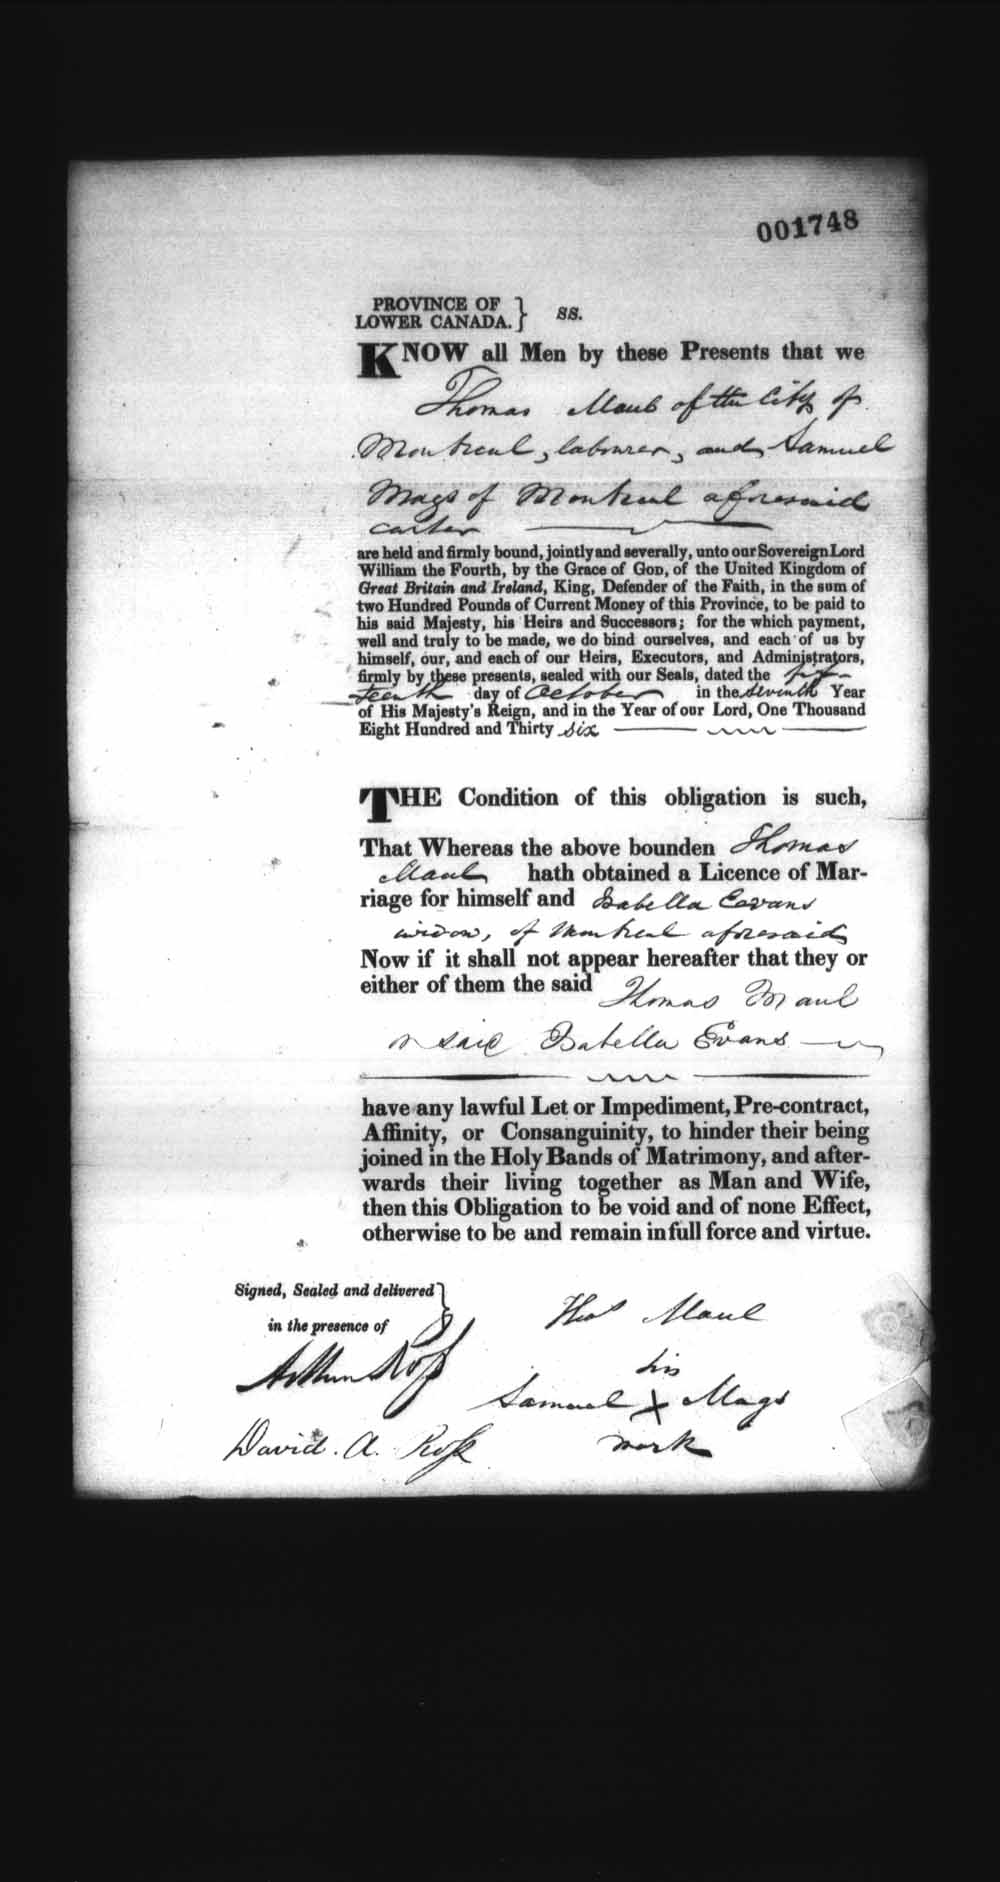 001748
PROVINCE OF
LOWER CANADA. } ss.
KNOW all Men by these Presents that we
Thomas Maul of the City of
Montreal, labourer, and Samuel
Mags of Montreal aforesaid
carter
are held and firmly bound, jointly and severally, unto our Sovereign Lord
William the Fourth, by the Grace of GOD, of the United Kingdom of
Great Britain and Ireland, King, Defender of the Faith, in the sum of
two Hundred Pounds of Current Money of this Province, to be paid to
his said Majesty, his Heirs and Successors; for the which payment,
well and truly to be made, we do bind ourselves, and each of us by
himself, our, and each of our Heirs, Executors, and Administrators,
firmly by these presents, sealed with our Seals, dated the fif-
teenth day of October in the seventh Year
of His Majesty's Reign, and in the Year of our Lord, One Thousand
Eight Hundred and Thirty six
THE Condition of this obligation is such,
That Whereas the above bounden Thomas
Maul hath obtained a Licence of Mar-
riage for himself and Isabella Evans
widow, of Montreal aforesaid
Now if it shall not appear hereafter that they or
either of them the said Thomas Maul
or said Isabella Evans
have any lawful Let or Impediment, Pre-contract,
Affinity, or Consanguinity, to hinder their being
joined in the Holy Bands of Matrimony, and after-
wards their living together as Man and Wife,
then this Obligation to be void and of none Effect,
otherwise to be and remain in full force and virtue.
Signed, Sealed and delivered }
in the presence of
Thos Maul
Arthur Ross
his
Samuel X Mags
mark
David. A. Ross